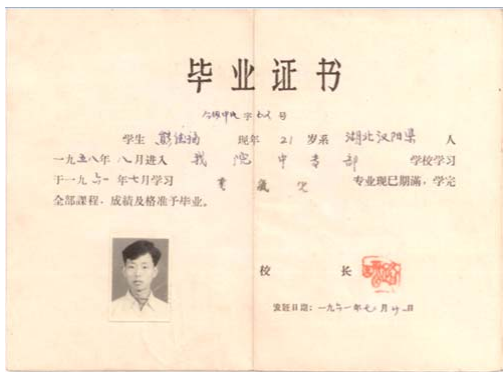 毕业证书
字 号
学生 现年 21 岁系 湖北汉阳县 人
一九五八年八月进入 我院中专部 学校学习
于一九六一年七月学习 专业现已期满,学完
全部课程,成绩及格准予毕业。
校 长
发证日期:一九六一年七月 日